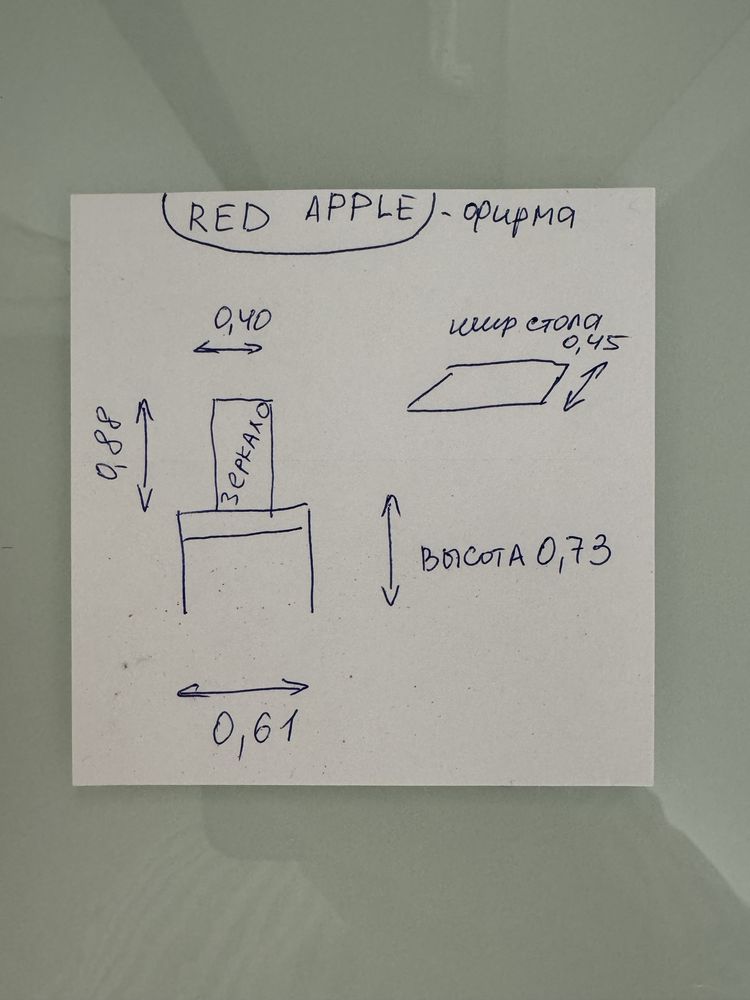 RED APPLE - фирма
0,40
шир стола
0,45
0,88
зеркало
высота 0,73
0,61